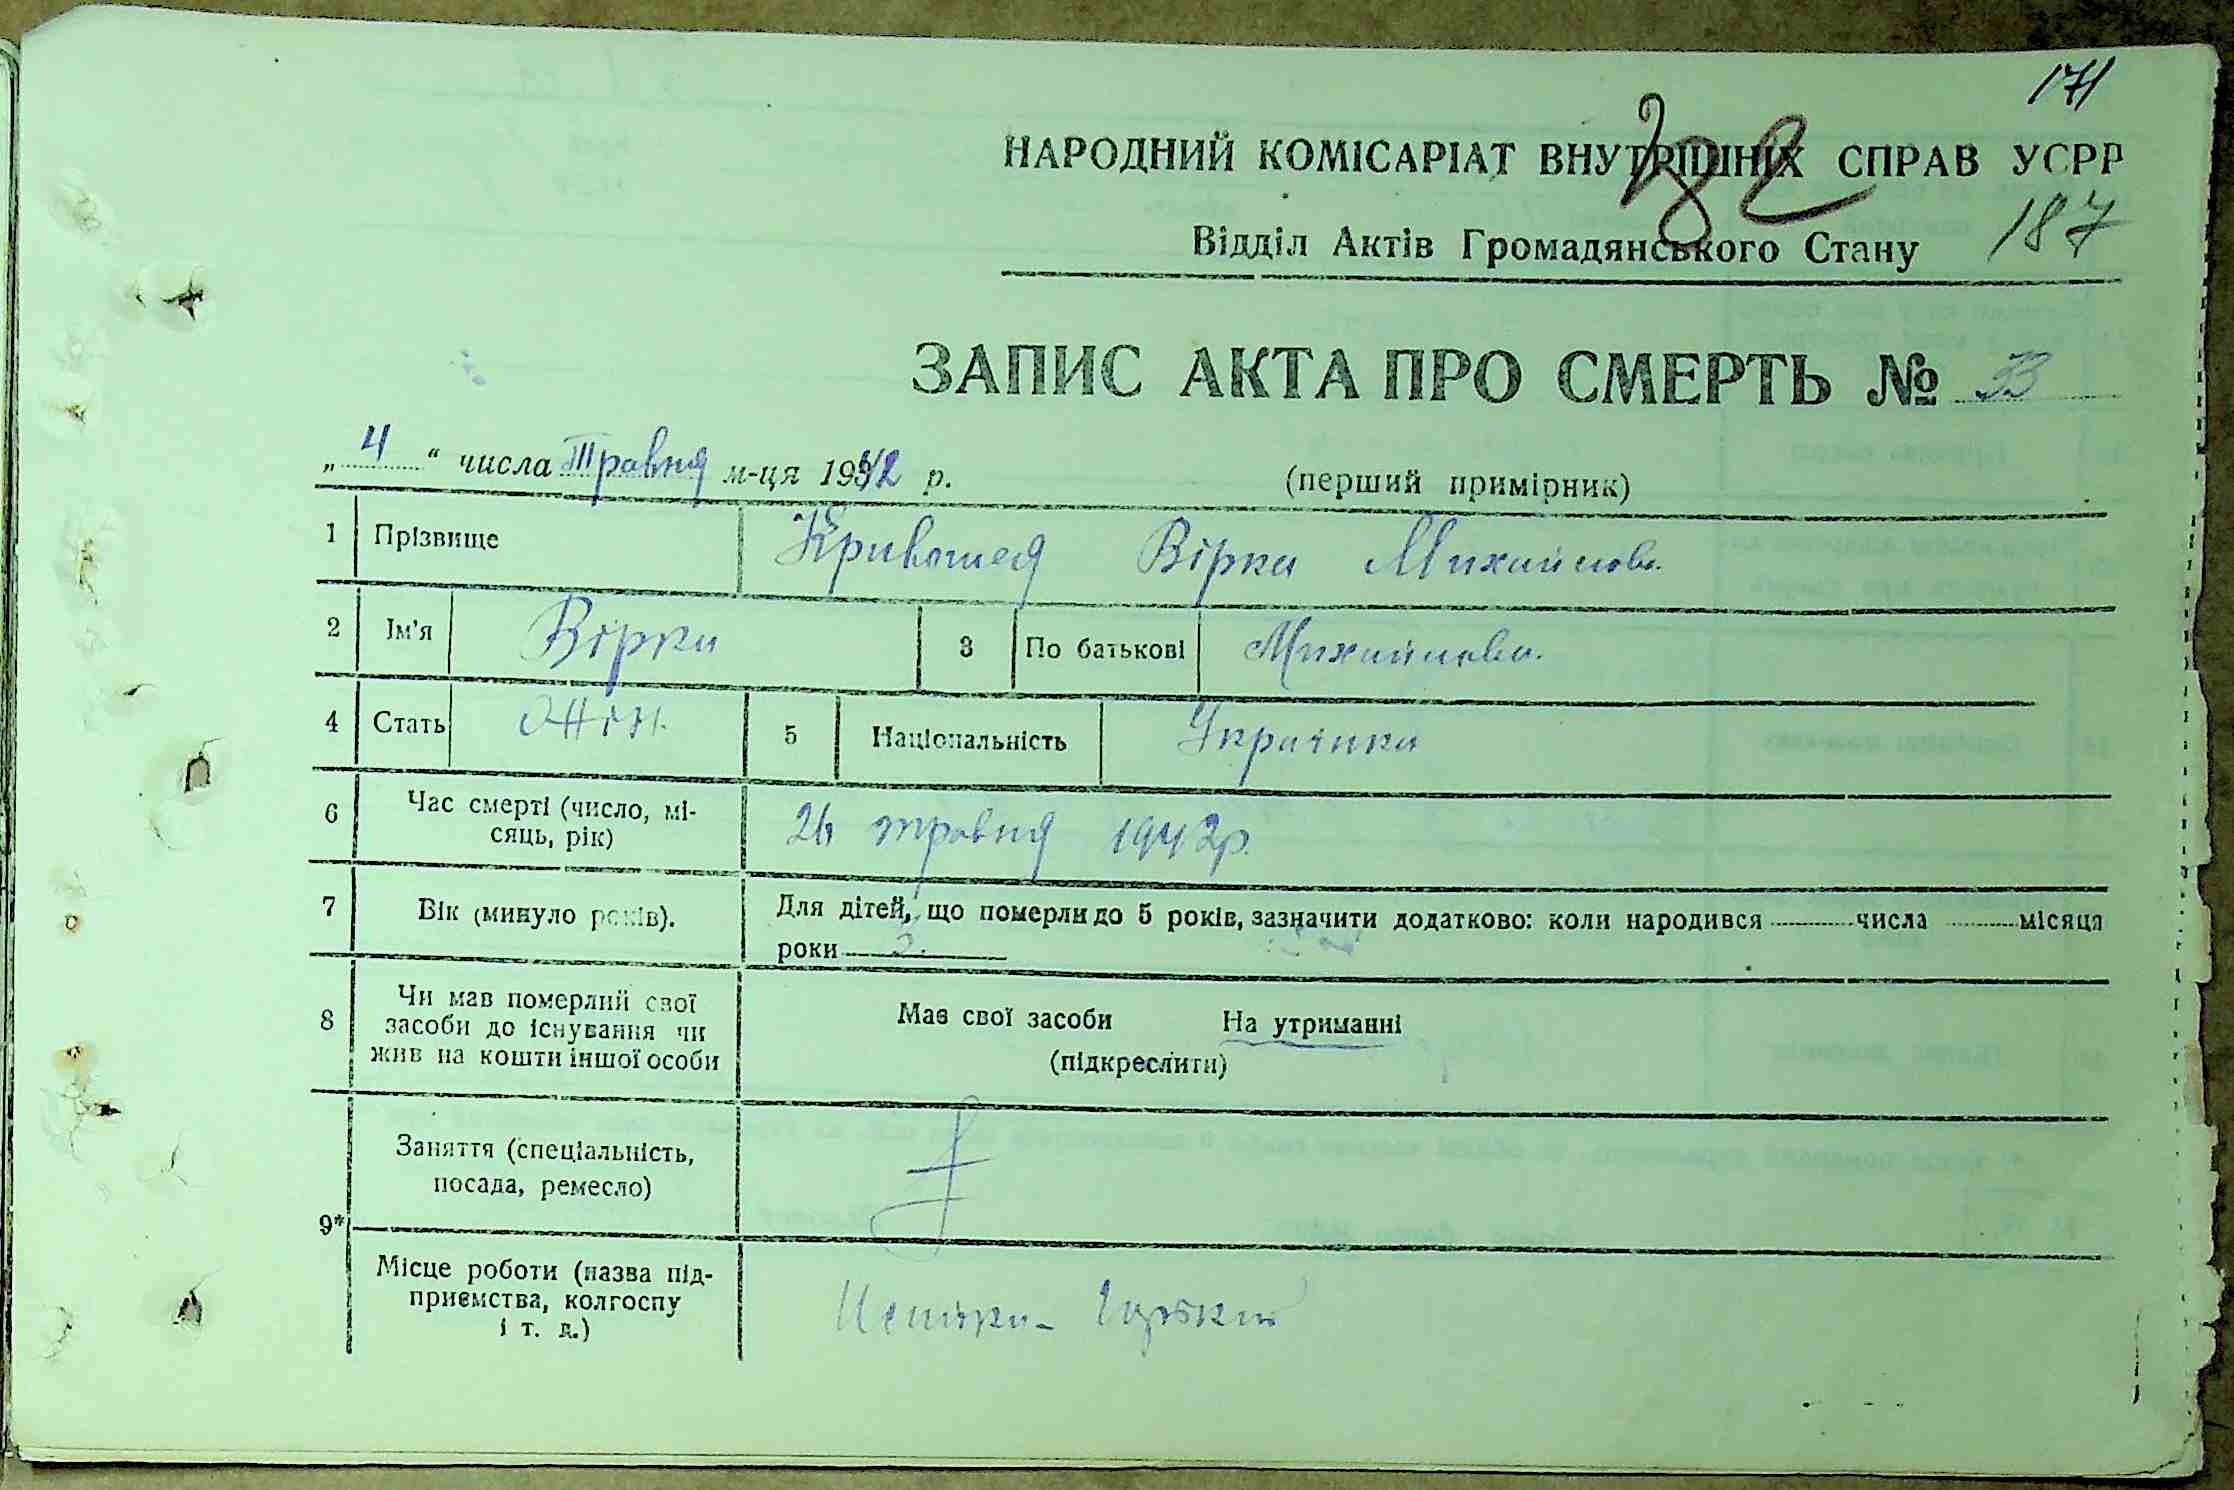 171
НАРОДНИЙ КОМІСАРІАТ ВНУТРІШНІХ СПРАВ УСРР
182
Відділ Актів Громадянського Стану 187
ЗАПИС АКТА ПРО СМЕРТЬ № 33
„ 4 “ числа Травня м-ця 1942 р. (перший примірник)
1 Прізвище Кривошея Вірка Михайлова.
2 Ім'я Вірка 3 По батькові Михайлова.
4 Стать Жін. 5 Національність Украінка
6 Час смерті (число, мі-
сяць, рік) 26 травня 1942р.
7 Вік (минуло років). Для дітей, що померли до 5 років, зазначити додатково: коли народився числа місяця
роки 3.
8 Чи мав померлий свої
засоби до існування чи
жив на кошти іншої особи
Має свої засоби На утриманні
(підкреслити)
Заняття (спеціальність,
посада, ремесло)
9*
Місце роботи (назва під-
приємства, колгоспу
і т. д.)